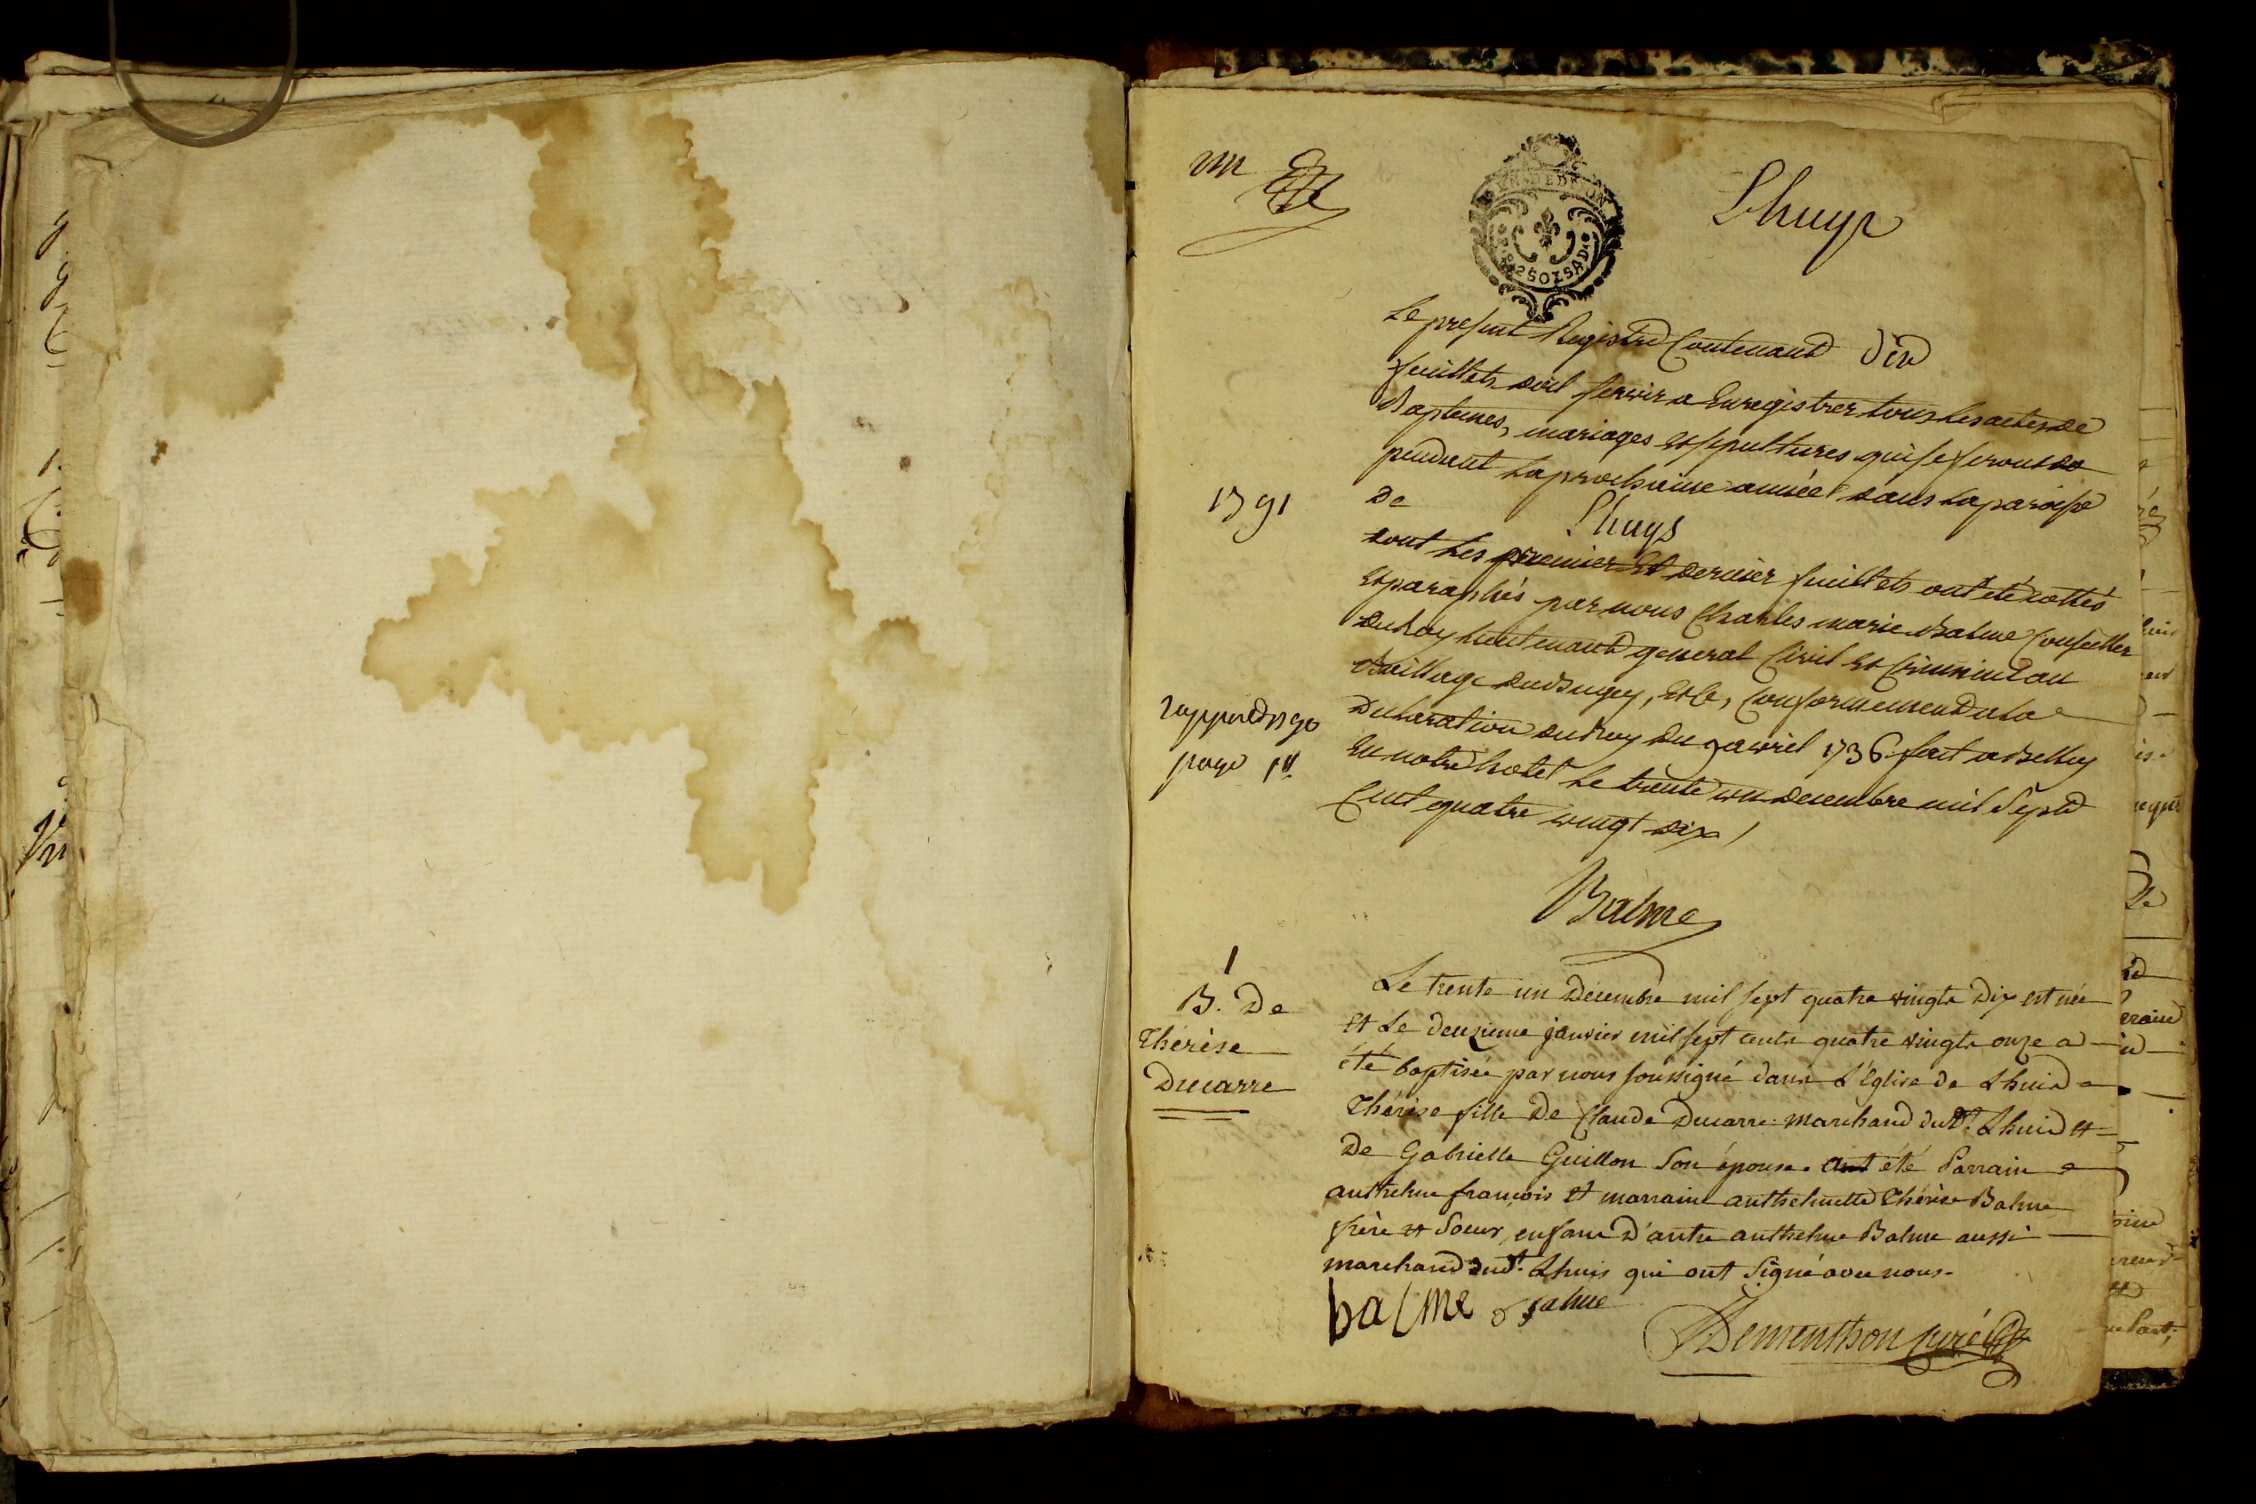 un
Lhuys
Le present Registre Contenant dix
feuillets doit servir a Enregistrer tous les actes de
Baptemes, mariages et sepultures qui se feront
pendant la prochaine année dans la paroisse
de Lhuys
1791
dont les premier et dernier feuillets ont été cottés
et paraphés par nous Charles marie Balme Conseiller
du Roy Lieutenant general Civil et Criminel au
Bailliage du Bugey, et ce, Conformement a la
Declaration du Roy du 9 avril 1736 fait a Belley
en notre hotel le trente un decembre mil sept
Cent quatre vingt dix /
page 1er
Balme
1
B. De
Thérèse
Ducarre
Le trente un Décembre mil sept quatre vingts Dix est née
et Le deuxieme janvier mil sept cents quatre vingts onze a
été baptisée par nous soussigné dans L'Eglise de Lhuis
Thérèse fille De Claude Ducarre marchand dud.t Lhuis et
De Gabrielle Guillon Son épouse. ont été Parrain
anthelme françois et marraine anthelmette Thérèse Balme
frère et Soeur, enfans D'autre anthelme Balme aussi
marchand dud.t Lhuis qui ont Signé avec nous.
balme Balme
Dementhon curé